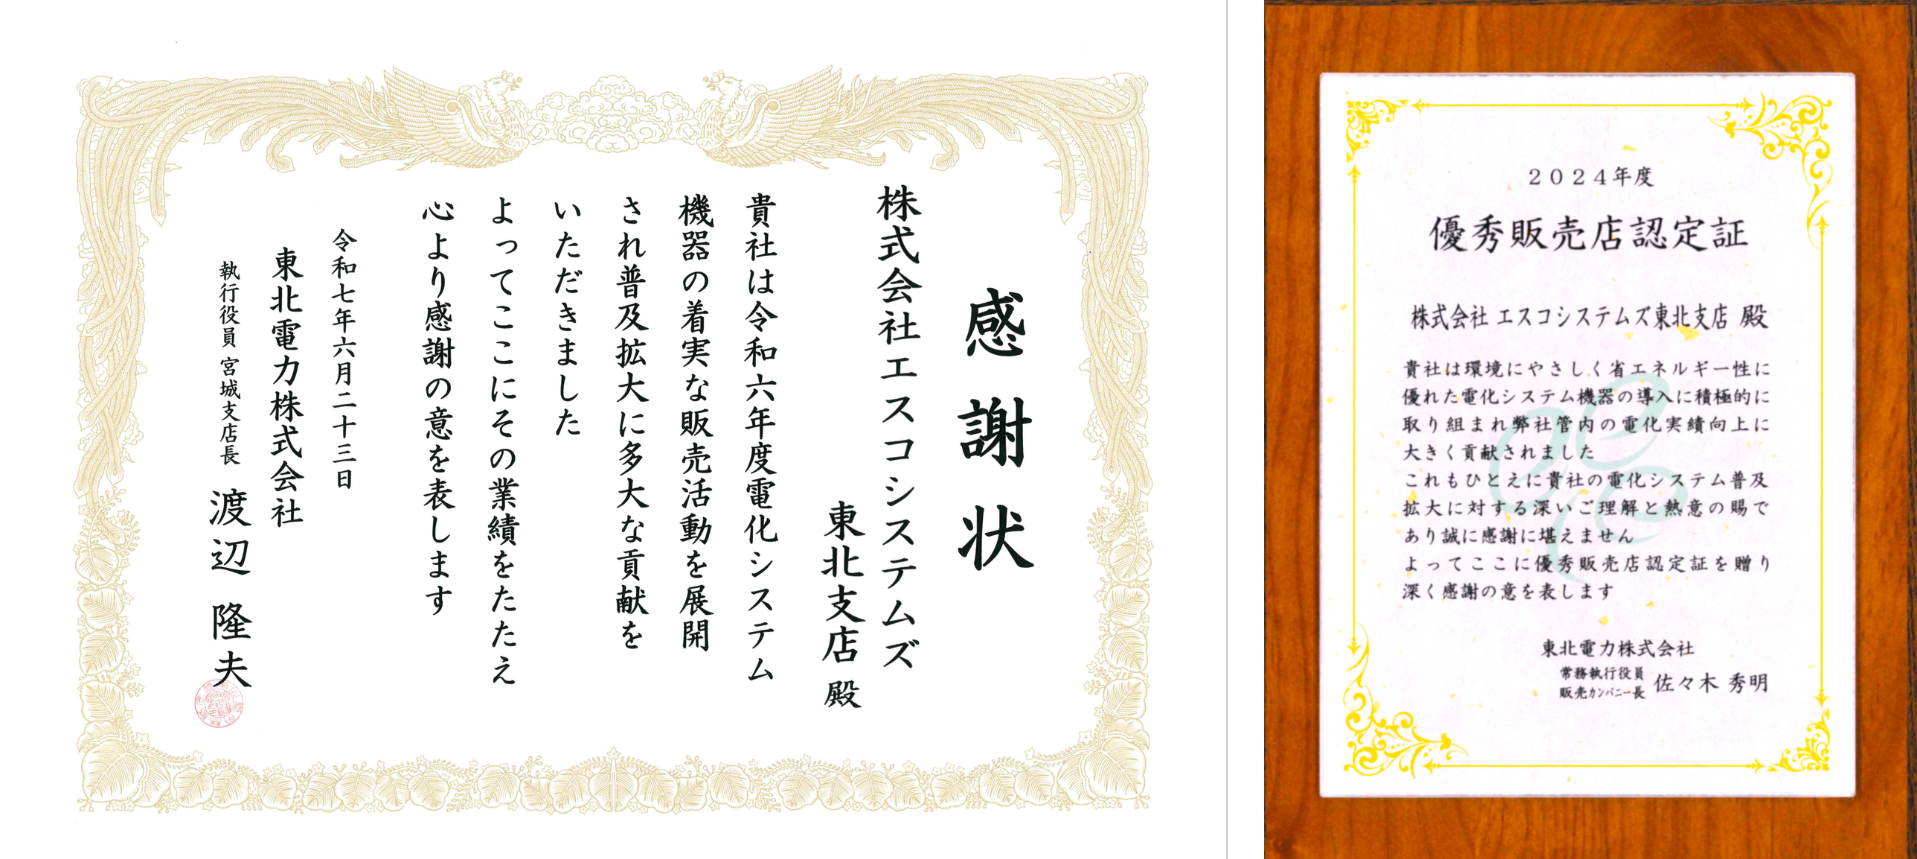 感謝状
株式会社エスコシステムズ
東北支店 殿
貴社は令和六年度電化システム
機器の着実な販売活動を展開
され普及拡大に多大な貢献を
いただきました
よってここにその業績をたたえ
心より感謝の意を表します
令和七年六月二十三日
東北電力株式会社
執行役員 宮城支店長 渡辺 隆夫
2024年度
優秀販売店認定証
株式会社 エスコシステムズ東北支店 殿
貴社は環境にやさしく省エネルギー性に
優れた電化システム機器の導入に積極的に
取り組まれ弊社管内の電化実績向上に
大きく貢献されました
これもひとえに貴社の電化システム普及
拡大に対する深いご理解と熱意の賜で
あり誠に感謝に堪えません
よってここに優秀販売店認定証を贈り
深く感謝の意を表します
東北電力株式会社
常務執行役員
販売カンパニー長 佐々木 秀明